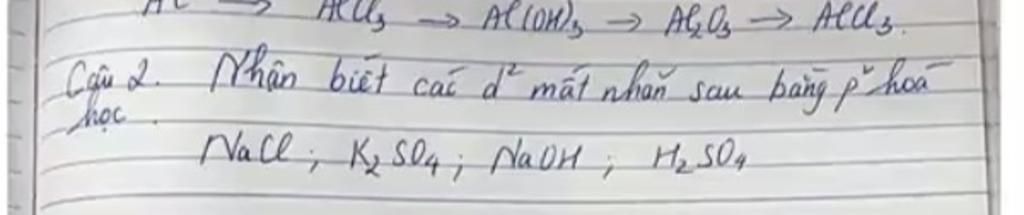 Al → AlCl₃ → Al(OH)₃ → Al₂O₃ → AlCl₃.
Câu 2. Nhận biết các d² mất nhãn sau bằng p² hoá
học.
NaCl ; K₂SO₄ ; NaOH ; H₂SO₄